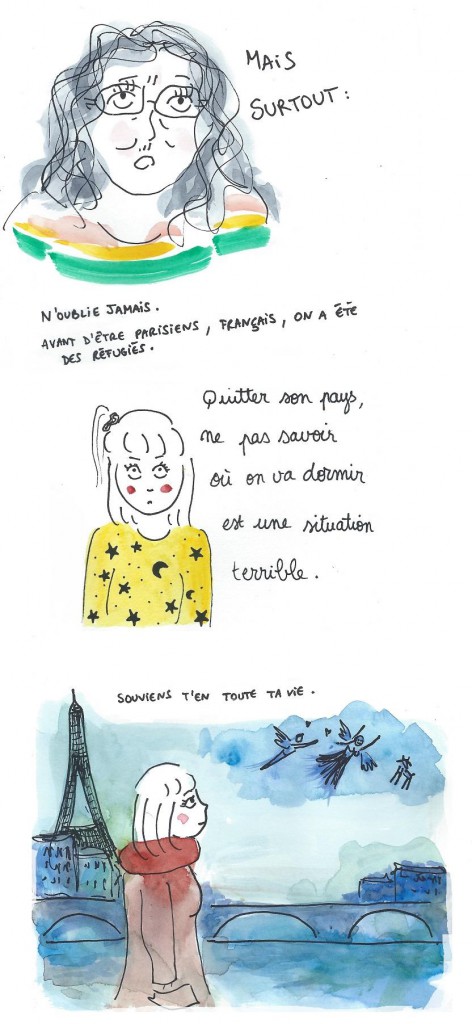 MAIS
SURTOUT :
N'OUBLIE JAMAIS.
AVANT D'ÊTRE PARISIENS, FRANÇAIS, ON A ÉTÉ
DES RÉFUGIÉS.
Quitter son pays,
ne pas savoir
où on va dormir
est une situation
terrible.
SOUVIENS T'EN TOUTE TA VIE.